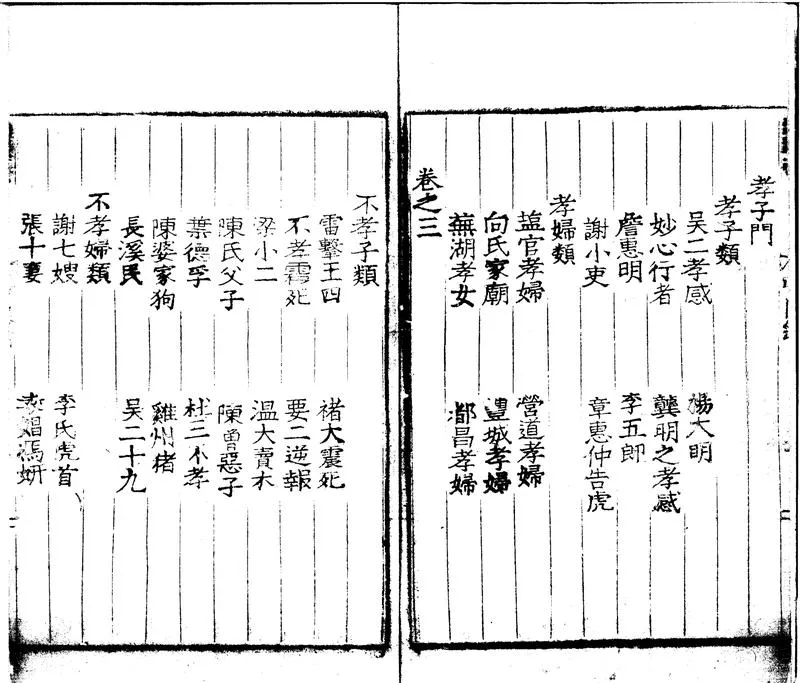 孝子門
孝子類
吴二孝感 楊大明
妙心行者 龔明之孝感
詹惠明 李五郎
謝小吏 章惠仲告虎
孝婦類
鹽官孝婦 營道孝婦
向氏家廟 豐城孝婦
蕪湖孝女 都昌孝婦
卷之三
不孝子類
雷擊王四 褚大震死
不孝震死 要二逆報
梁小二 温大賣木
陳氏父子 陳曾惡子
葉德孚 杜三不孝
陳婆家狗 雞州楮
長溪民 吴二十九
不孝婦類
謝七嫂 李氏虎首
張十妻 袁娼馮妍